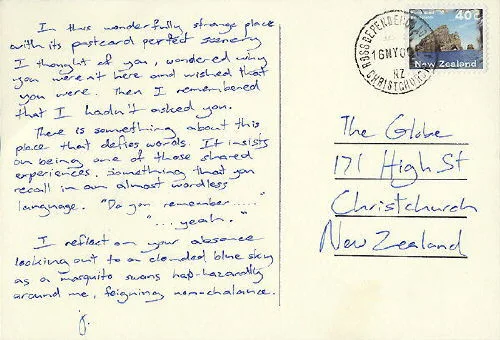 In this wonderfully strange place
with its postcard perfect scenery
I thought of you, wondered why
you weren't here and wished that
you were. Then I remembered
that I hadn't asked you.
There is something about this
place that defies words. It insists
on being one of those shared
experiences. Something that you
recall in an almost wordless
language. "Do you remember....."
"...yeah."
I reflect on your absence
looking out to a clouded blue sky
as a mosquito swans hap-hazardly
around me, feigning non-chalance.
j.
40c
New Zealand
ROSS DEPENDENCY
NZ
CHRISTCHURCH
The Globe
171 High St
Christchurch
New Zealand